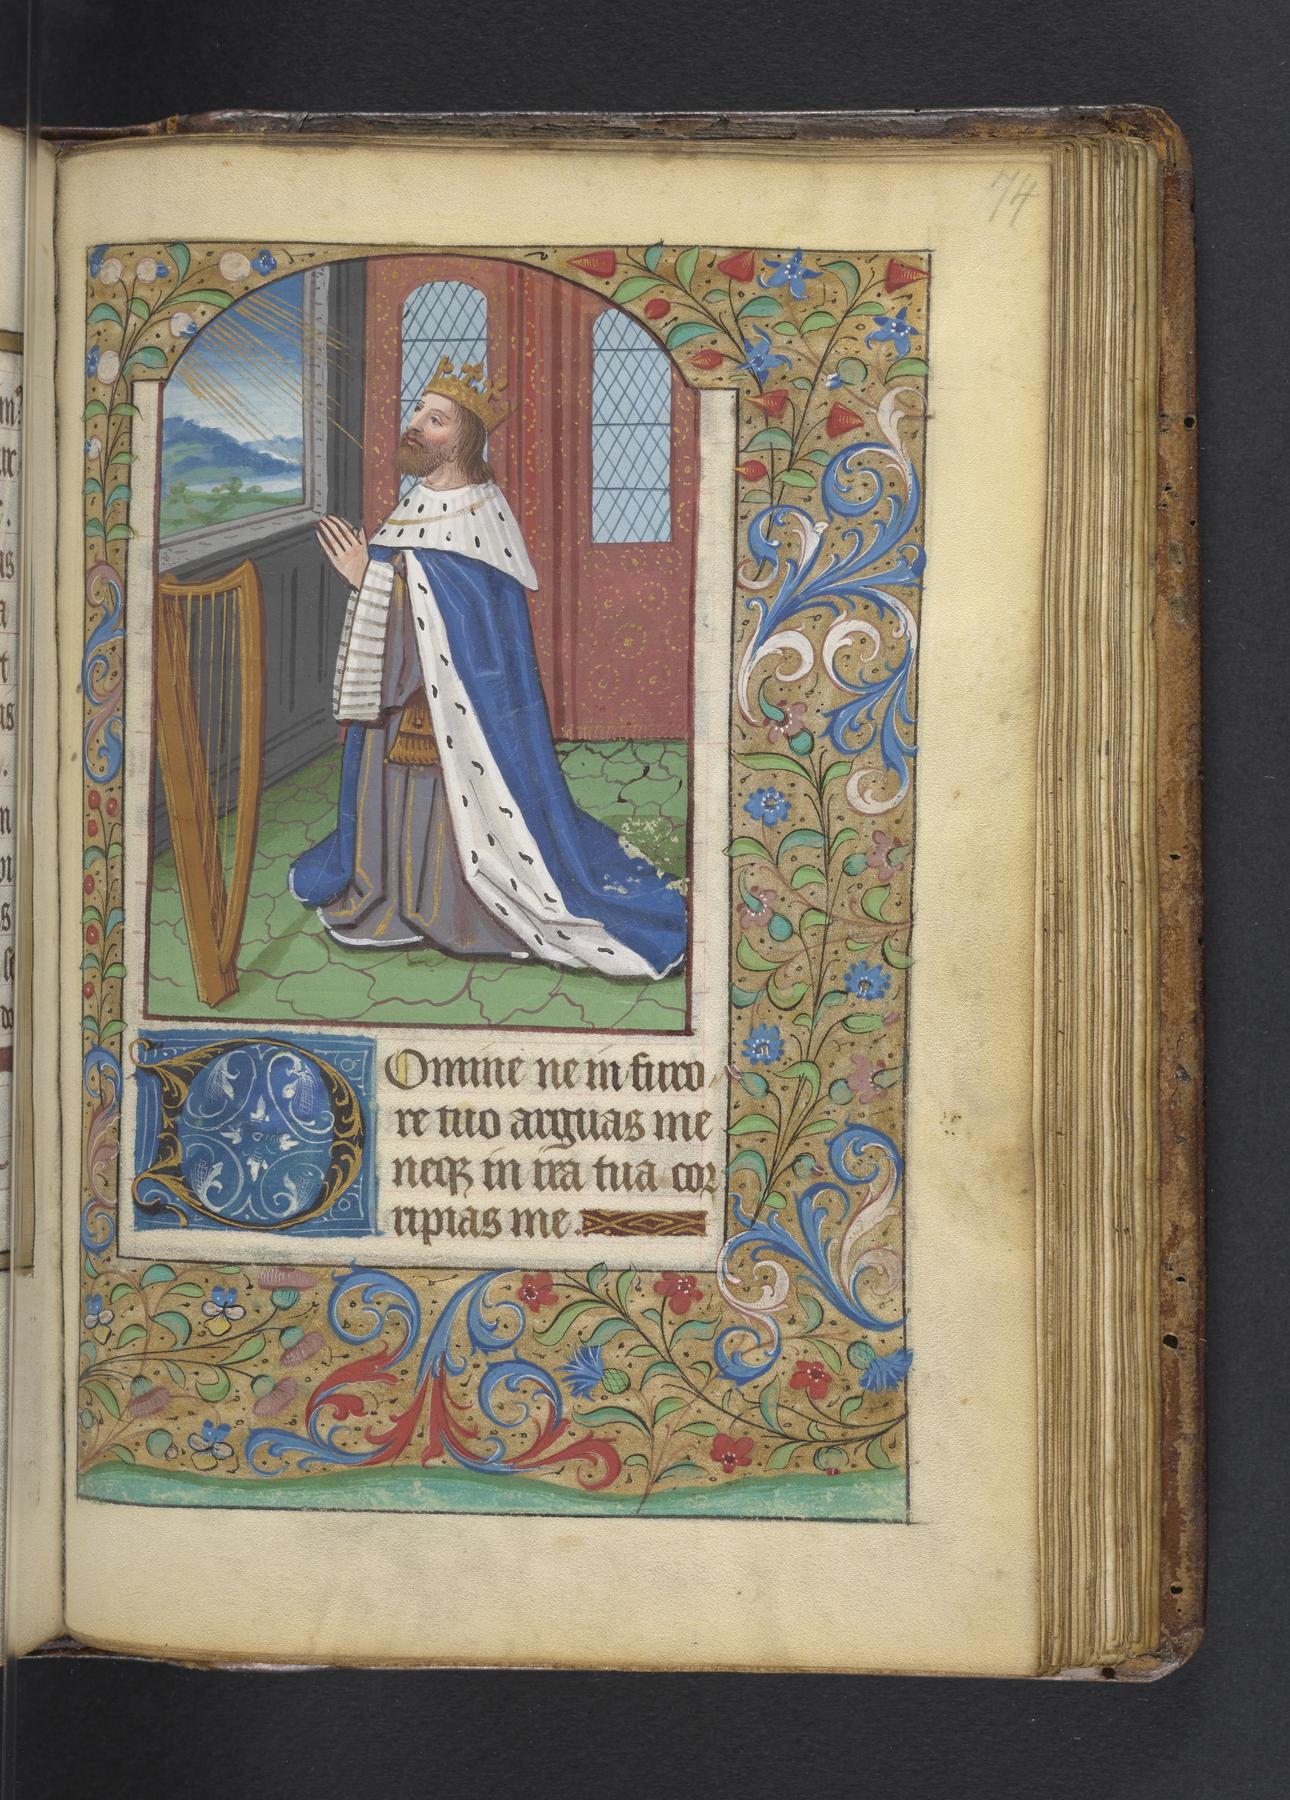 74
Domine ne in furo
re tuo arguas me
neqꝫ in ira tua cor
ripias me.